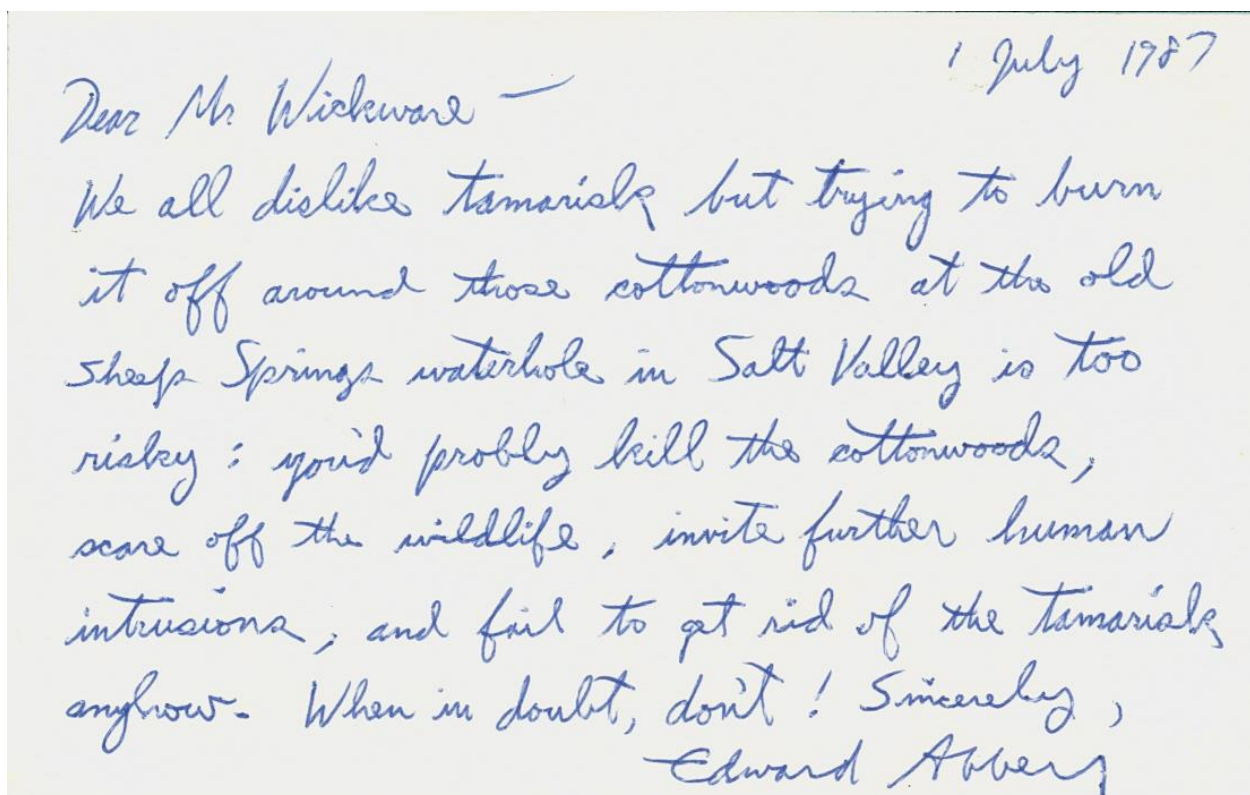 1 July 1987
Dear Mr Wickware —
We all dislike tamarisk but trying to burn
it off around those cottonwoods at the old
Sheep Springs waterhole in Salt Valley is too
risky: you'd probly kill the cottonwoods,
scare off the wildlife, invite further human
intrusions, and fail to get rid of the tamarisk
anyhow. When in doubt, don't! Sincerely,
Edward Abbey